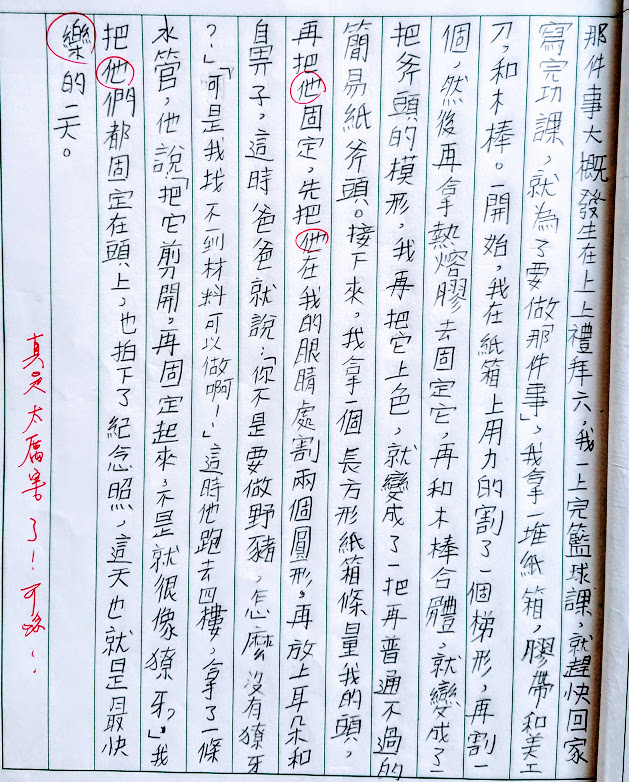 那件事大概發生在上上禮拜六，我一上完籃球課，就趕快回家
寫完功課，就為了要做那件事」，我拿一堆紙箱，膠帶和美工
刀，和木棒。一開始，我在紙箱上用力的割了一個梯形，再割一
個，然後再拿熱熔膠去固定它，再和木棒合體，就變成了一
把斧頭的模形，我再把它上色，就變成了一把再普通不過的
簡易紙斧頭。接下來，我拿一個長方形紙箱條量我的頭，
再把他固定，先把他在我的眼睛處割兩個圓形。再放上耳朵和
鼻子，這時爸爸就說：「你不是要做野豬，怎麼沒有獠牙
？」「可是我找不到材料可以做啊！」這時他跑去四樓，拿了一條
水管，他說「把它剪開，再固定起來，不是就很像獠牙？」我
把他們都固定在頭上，也拍下了紀念照，這天也就是最快
樂的一天。
真是太厲害了！